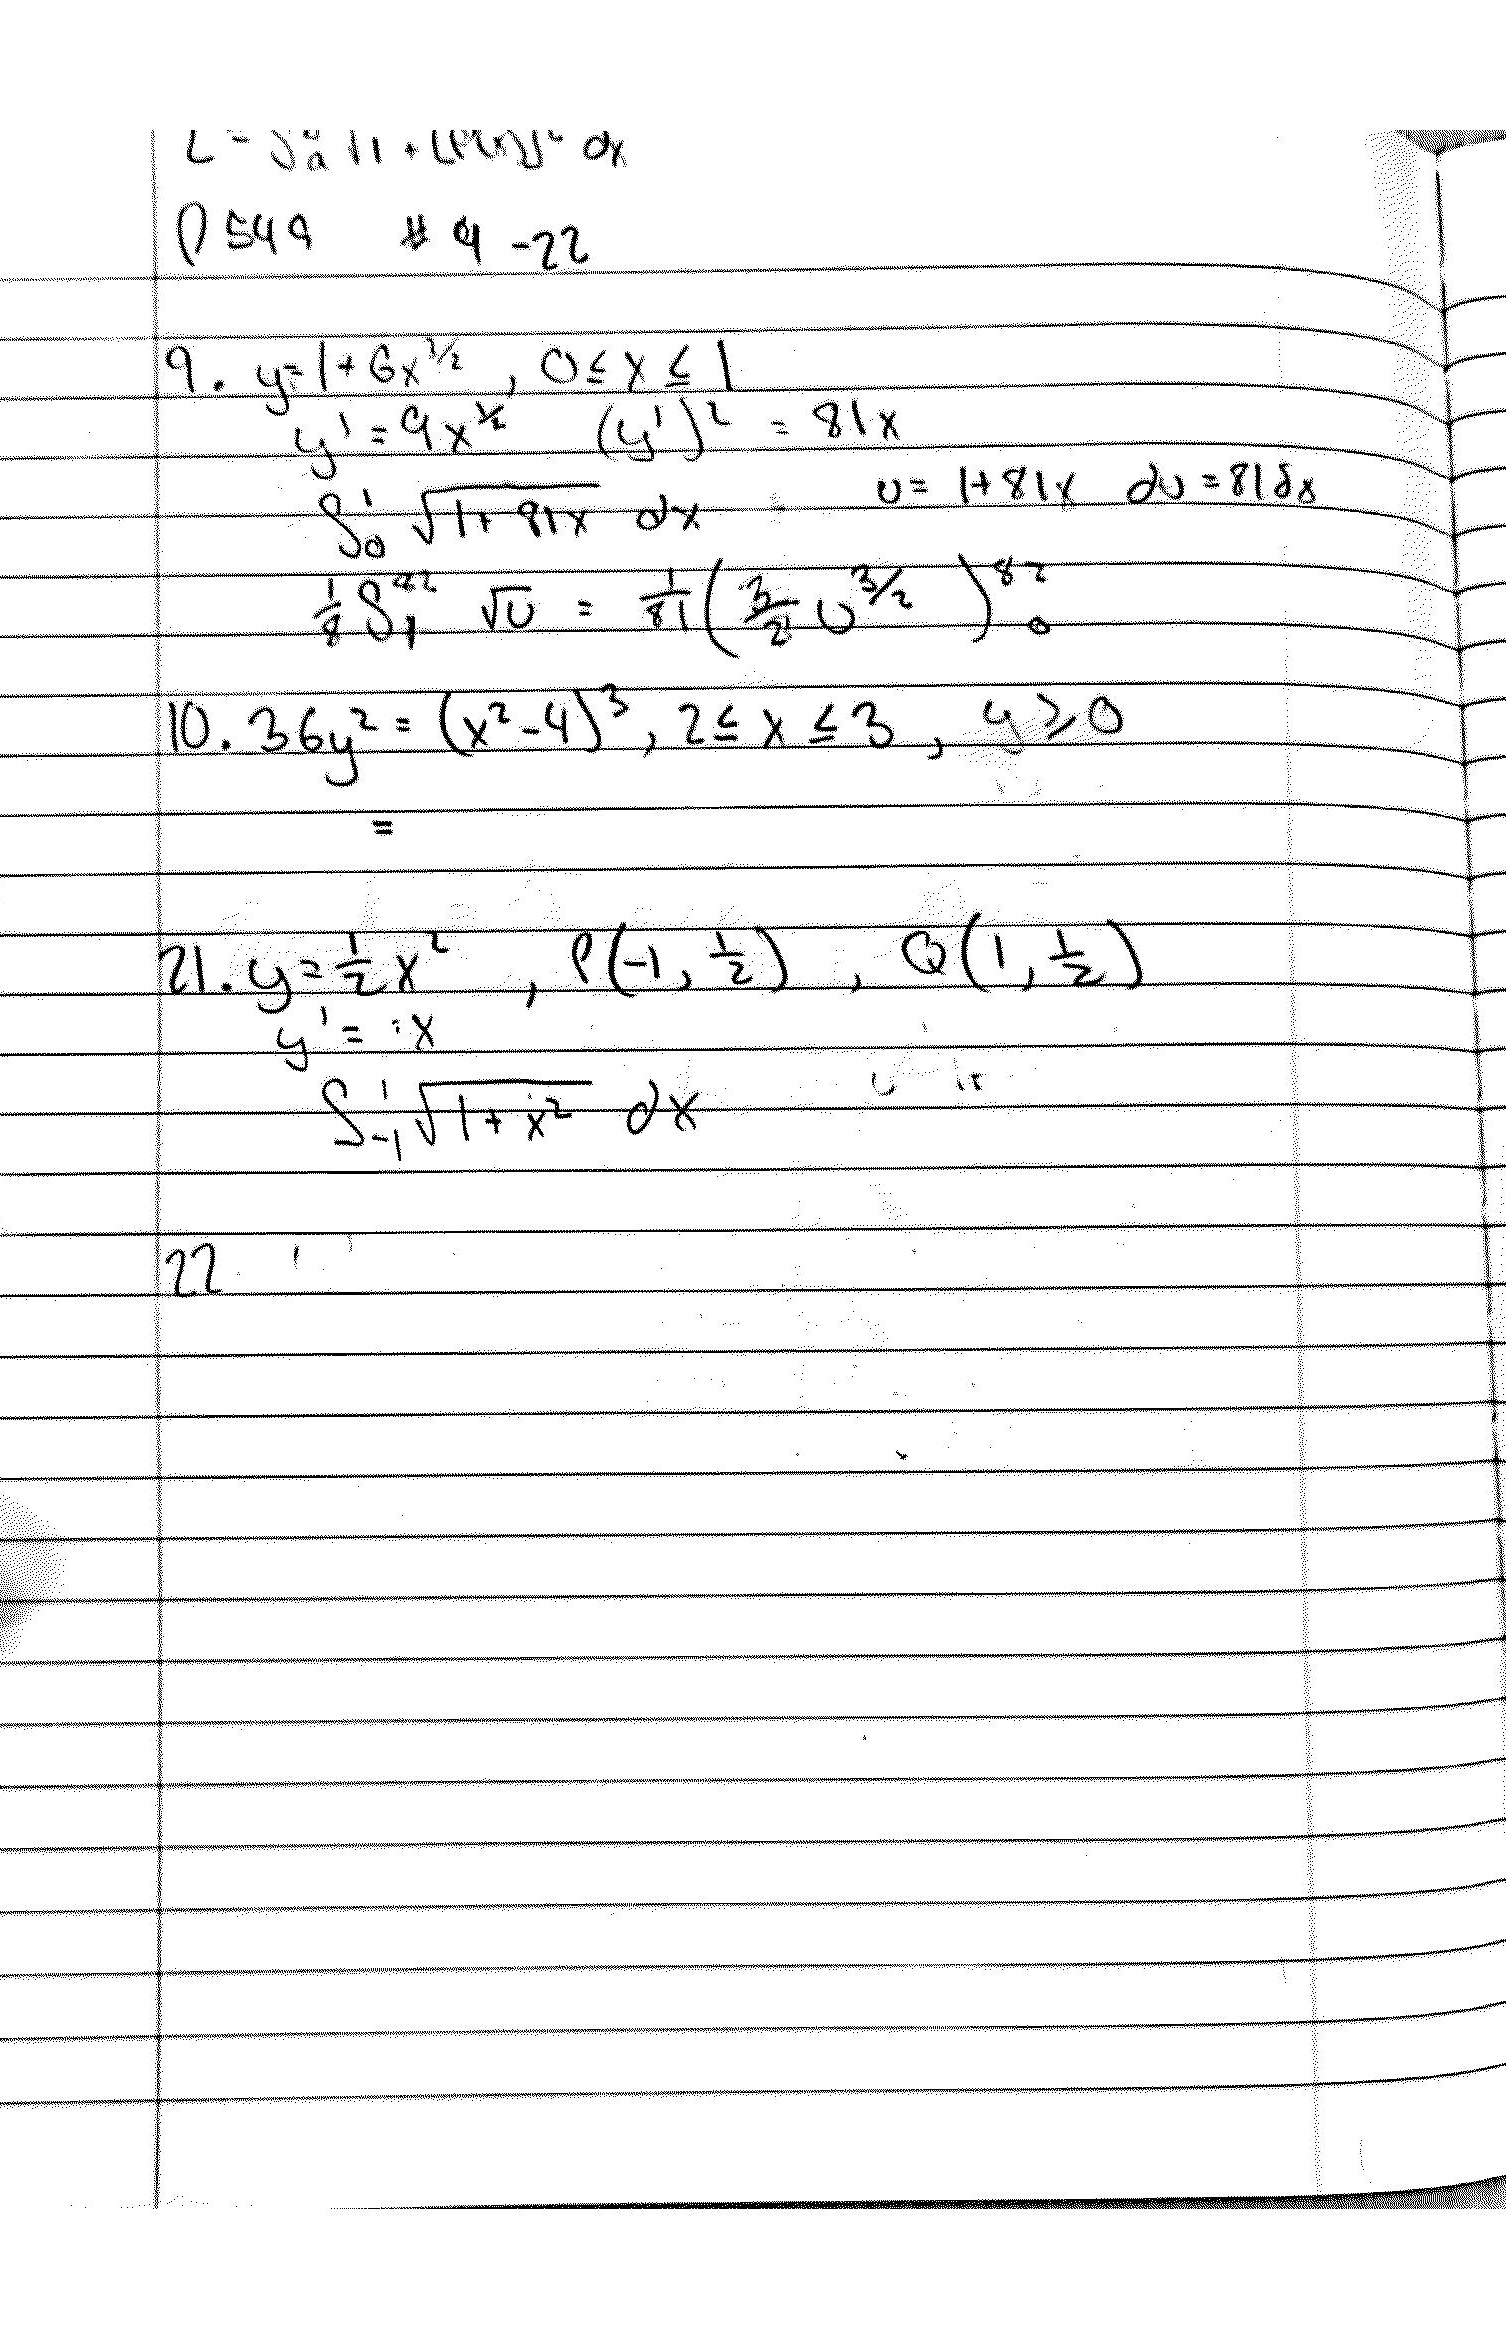 L = ∫ₐ √1 + [f'(x)]² dx
P 549 # 9 -22
9. y = 1 + 6x^3/2 , 0 ≤ x ≤ 1
y' = 9x^1/2 (y')² = 81x
∫₀¹ √1 + 81x dx u = 1 + 81x du = 81dx
1/8 ∫₁^82 √u = 1/81 ( 3/2 u^3/2 )₀^82
10. 36y² = (x² - 4)³ , 2 ≤ x ≤ 3 , y ≥ 0
=
21. y = 1/2 x² , P(-1, 1/2) , Q(1, 1/2)
y' = x
∫₋₁¹ √1 + x² dx
22